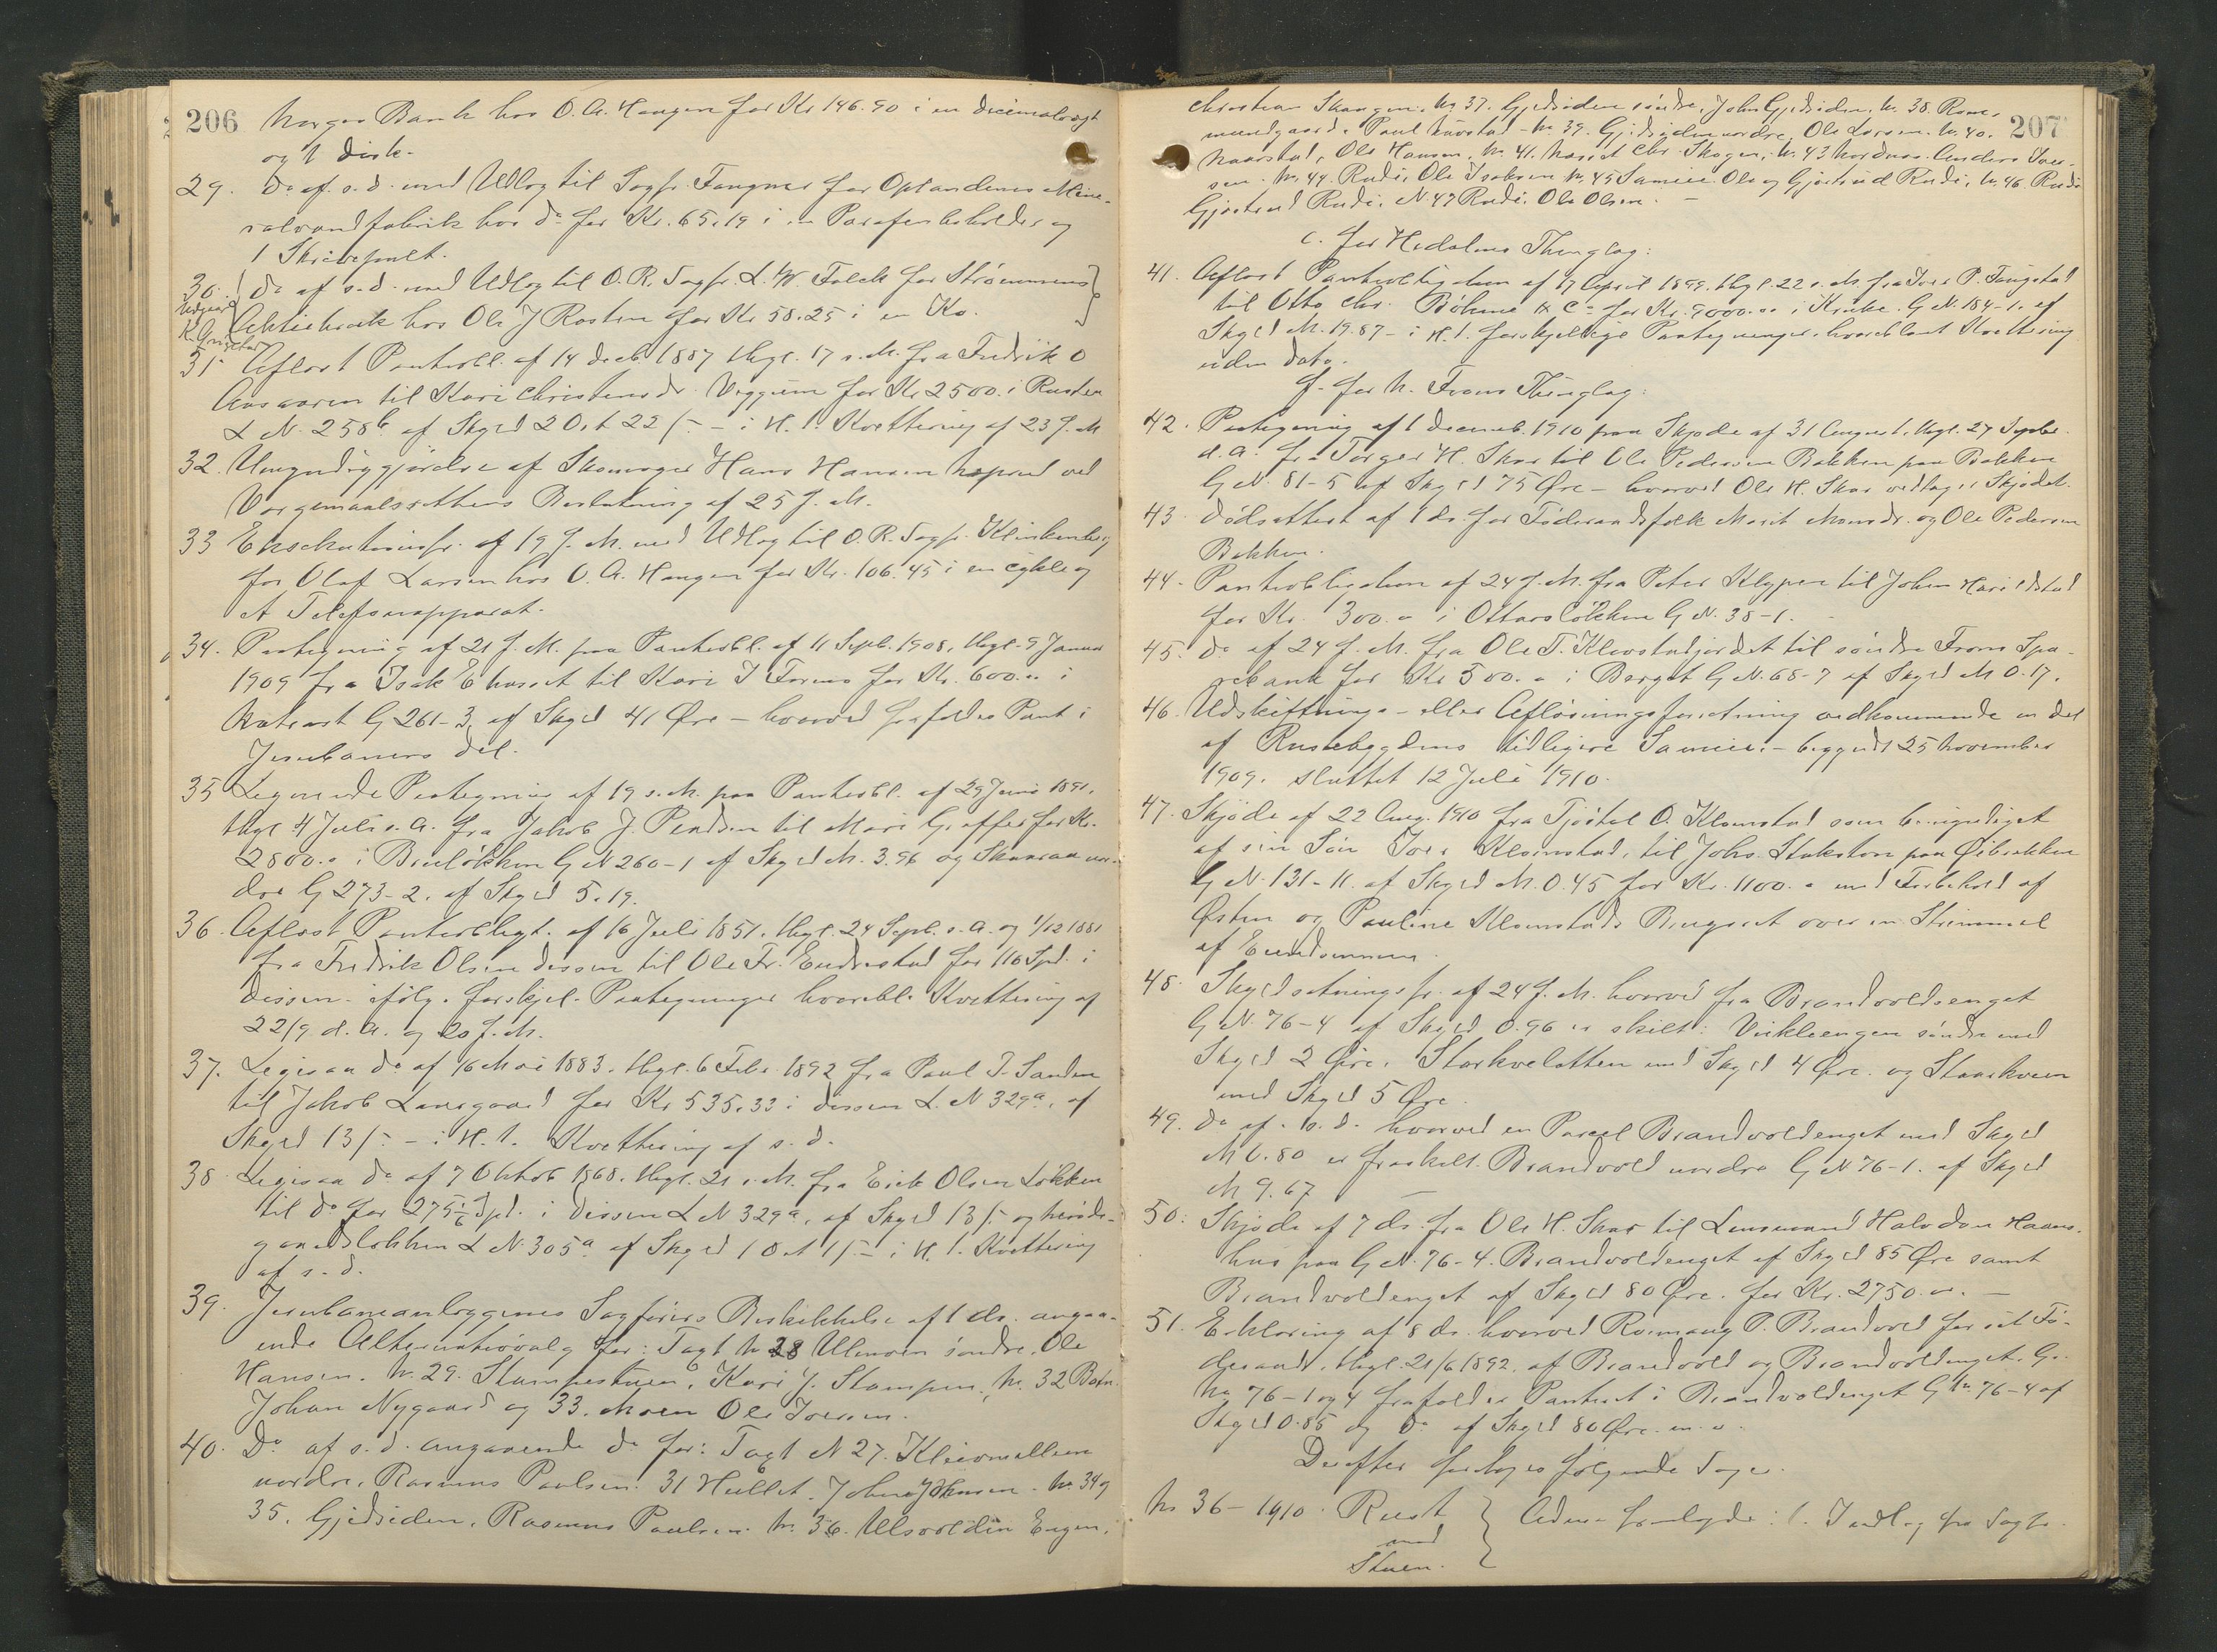 206
Norges Bank hos O. A. Haugen for Kr 146.90 i en Decimalvægt
og 1 Disk.
29. Do af s. d. med Udlæg til Sagfr. Fougner for Oplandenes Mine-
ralvandfabrik hos do for Kr. 65.19 i en Parafinbeholder og
1 Skrivepult.
30. Do af s. d. med Udlæg til O. R. Sagfr. L. W. Falck for Strømmens
Udgaar
Aktiebruk hos Ole J Rosten for Kr 58.25 i en Ko.
31 Aflæst Pantobl. af 14 Decb 1887 thgl. 17 s. M. fra Fredrik O
Aasaaren til Kari Christensdr. Veggum for Kr 2500. i Rusten
L N. 258b af Skyld 2 O, t 22 /- – i H. t. Kvittering af 23 f. M
32. Umyndiggjørelse af Skomager Hans Hansen ved
Vergemaalsrettens Beslutning af 25 f. M.
33 Exekutionsfr. af 19 f. M. med Udlæg til O. R. Sagfr. Klinkenberg
for Olaf Larsen hos O. A. Haugen for Kr. 106.45 i en cykle og
et Telefonapparat.
34. Paategning af 21 f. M. paa Pantobl. af 11 Septb. 1908, thgl. 9 Januar
1909 fra Isak E. til Kari J Formo for Kr. 600.00 i
G 261-3, af Skyld 41 Øre – hvorved frafaldes Pant i
Jernbanens Del.
35 Ligesaa Paategning af 19 s. M. paa Pantobl. af 29 Juni 1891.
thgl 4 Juli s. A. fra Jakob J. til Mari for Kr.
2800.00 i G N 260-1 af Skyld M. 3.96 og nor-
dre G 273-2. af Skyld 5.19.
36. Aflæst Pantobligt. af 16 Juli 1851. thgl. 24 Septb. s. A. og 1/12 1881
fra Fredrik Olsen Dessen til Ole Fr. for 116 Spd. i
Dessen – ifølge forskjel. Paategninger hvoribl. Kvittering af
22/9 d. A. og 20 f. M.
37. Ligesaa do af 16 Mai 1883. thgl. 6 Febr 1892 fra Paul J. Sanden
til Jakob Laurgaard for Kr 535.33 i Dessen L. N 329a, af
Skyld 13 /- – i H. t. Kvittering af s. d.
38 Ligesaa do af 7 Oktob 1868. thgl. 21 s. M. fra Erik Olsen Løkken
til do for 275 Spd. i Dessen L N 329a, af Skyld 13 /- og
L N. 305a af Skyld 1 O t 1 /- – i H. t. Kvittering
af s. d.
39. Jernbaneanlæggenes Sagførers Beskikkelse af 1 ds. angaa-
ende for: Taxt N 28 Ulmoen søndre, Ole
Hansen. N. 29. Stampestuen, Kari J. Stampen, N. 32
Johan Nygaard og 33. Moen Ole Joersen.
40. Do af s. d. angaaende do for: Taxt N 27. Kleivmellem
nordre, Rasmus Paulsen. 31 Hullet, Johan Johansen. N. 34 og
35. Gjedsiden, Rasmus Paulsen. N. 36. Engen,
207
Christian Skaugen. N 37. Gjedsiden søndre, John Gjedsiden. N. 38. Rom-
mundgaard. Paul – N 39. Gjedsiden nordre, Ole Larsen. N. 40.
Ole Hansen, N. 41. Chr. Skogen, N. 43 Anders Joer-
sen. N. 44. Rudi, Ole Isaksen. N. 45 Sameie Ole og Gjertrud Rudi, N. 46. Rudi
Gjertrud Rudi. N 47 Rudi. Ole Olsen. –
c. for Hedalens Thinglag:
41. Aflæst Pantobligation af 17 April 1899. thgl. 22 s. M. fra Iver P. Tangstad
til Otto Chr. Bøhme & Co for Kr. 9000.00 i Kruke. G N. 184-1. af
Skyld M. 19.87 – i H. t. forskjellige Paategninger, hvoriblandt Kvittering
uden Dato.
f. for N. Frons Thinglag:
42. Paategning af 1 Decemb. 1910 paa Skjøde af 31 August, thgl. 27 Septbr.
d. A. fra Torger H. Skar til Ole Pedersen Bakken paa Bakken
G N. 81-5 af Skyld 75 Øre – hvorved Ole H. Skar vedtager Skjødet.
43 Dødsattest af 1 ds. for Føderaadsfolk Marit Monsdr. og Ole Pedersen
Bakken.
44. Pantobligation af 24 f. M. fra Peter Klypen til Johan Harildstad
for Kr. 300.00 i Ottarsløkken G N. 38-1.
45. Do af 24 f. M. fra Ole T. Klevstadjordet til søndre Frons Spa-
rebank for Kr 500.00 i Berget G N. 68-7 af Skyld M 0.17.
46. Udskiftnings- eller Afløsningsforretning vedkommende en del
af Rustebygdens tidligere Sameie. – begyndt 25 November
1909. sluttet 12 Juli 1910.
47. Skjøde af 22 Aug. 1910 fra Tjøstel O. Klomstad som bemyndiget
af sin Søn Iver Klomstad, til Johs. Stokstad paa Øibrekken
G N. 131-11. af Skyld M. 0.45 for Kr. 1100.00 med Forbehold af
Østen og Pauline Klomstads Brugsret over en Strimmel
af Eiendommen.
48. Skyldsætningsfr. af 24 f. M. hvorved fra Brandvoldenget
G N. 76-4 af Skyld 0.96 er skilt: Virkleengen søndre med
Skyld 2 Øre, Storkveletten med Skyld 4 Øre. og Storekveen
med Skyld 5 Øre.
49. Do af s. d. hvorved en Parcel Brandvoldenget med Skyld
M 0.80 er fraskilt Brandvold nordre G N 76-1. af Skyld
M 9.67 –
50. Skjøde af 7 ds. fra Ole H. Skar til Lensmand Halvdan Haans-
hus paa G N. 76-4. Brandvoldenget af Skyld 85 Øre samt
Brandvoldenget af Skyld 80 Øre. for Kr. 2750.00. –
51. Erklæring af 8 ds. hvorved Rønnaug P. Brandvold for sit Fø-
deraad, thgl. 21/6 1892, af Brandvold og Brandvoldenget, G.
N 76-1 og 4 frafalder Panteret i Brandvoldenget G N. 76-4 af
Skyld 0.85 og do af Skyld 80 Øre m. v.
Derefter foretoges følgende Sager.
No 36 – 1910. Rust
med
Stuen.
Adm. fremlagde: 1. Indlæg fra Sagfr.